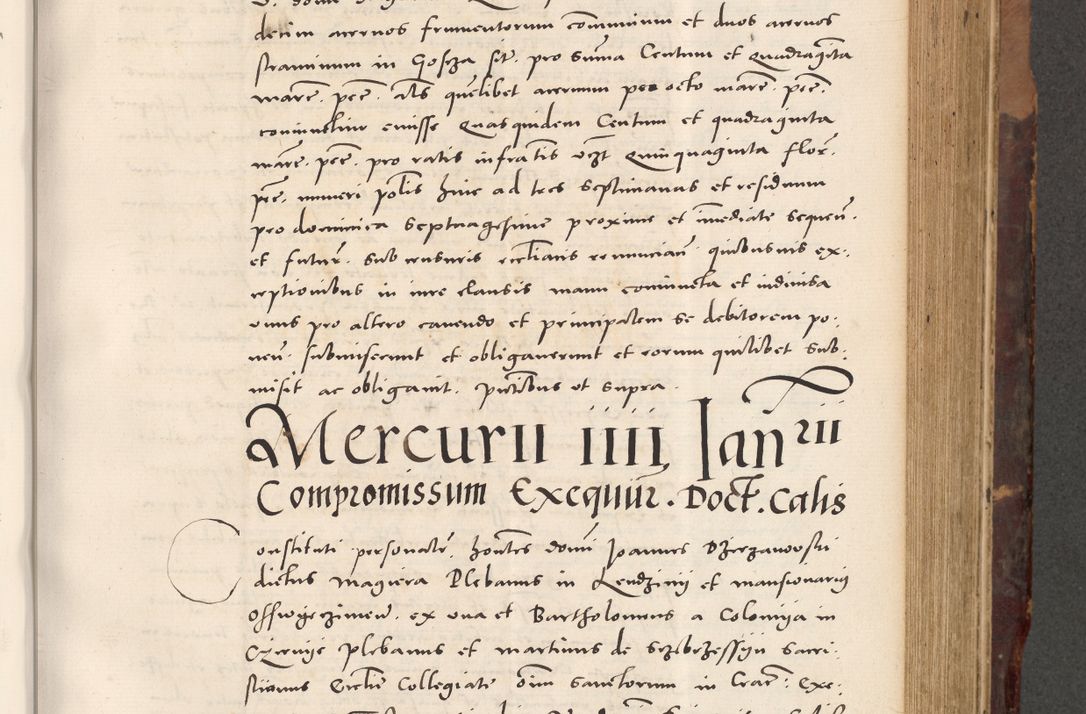 decim acervos frumentorum com̄unium et duos acervos
straminum in Gosza sit. pro sum̄a Centum et Quadragīta
marc̄. pec̄. als̄ quēlibet acervum pro octo marc̄. pec̄.
coniunctim emisse Quas quidem Centum et quadraginta
marc̄. pec̄. pro ratis infratis vz̄t Quinquaginta flor̄.
pec̄. numeri pol̄is hinc ad tres septimanas et residuum
pro dominica Septuagesime proxime et im̄ediate sequen̄.
et futur̄. Sub censuris ecc̄liasis renuncian̄. quibusvis ex-
ceptionibus in iure clausis manu coniuncta et indivisa
unus pro altero cavendo et principalem se debitorem po-
nen̄. submiserunt et obligaverunt et eorum quilibet sub-
misit ac obligavit. pn̄tibus ut supra.
Mercurii iiii Ian̄rii
Compromissum Exequūr. Doct̄. Calis
Constituti personalr̄. hon̄tes domī Joannes Dzierzanovski
dictus Magiera Plebanus in Lendzinij et mansionarij
Osswyeczimen̄. ex una et Bartholomeus a Colomyja in
Czernije plebanus et martinus de Sczebrzessijn Sacri-
stianus Ecclie Collegiate ōim Sanctorum in Crac̄: Exe-